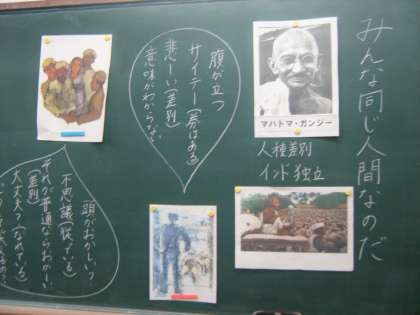 みんな同じ人間なのだ
マハトマ・ガンジー
人種差別
インド独立
腹が立つ
サイテー(はある)
悲しい(差別)
意味がわからない
頭がおかしい?
不思議(従っている)
それが普通ならおかしい
(差別)
大丈夫?(なれている)